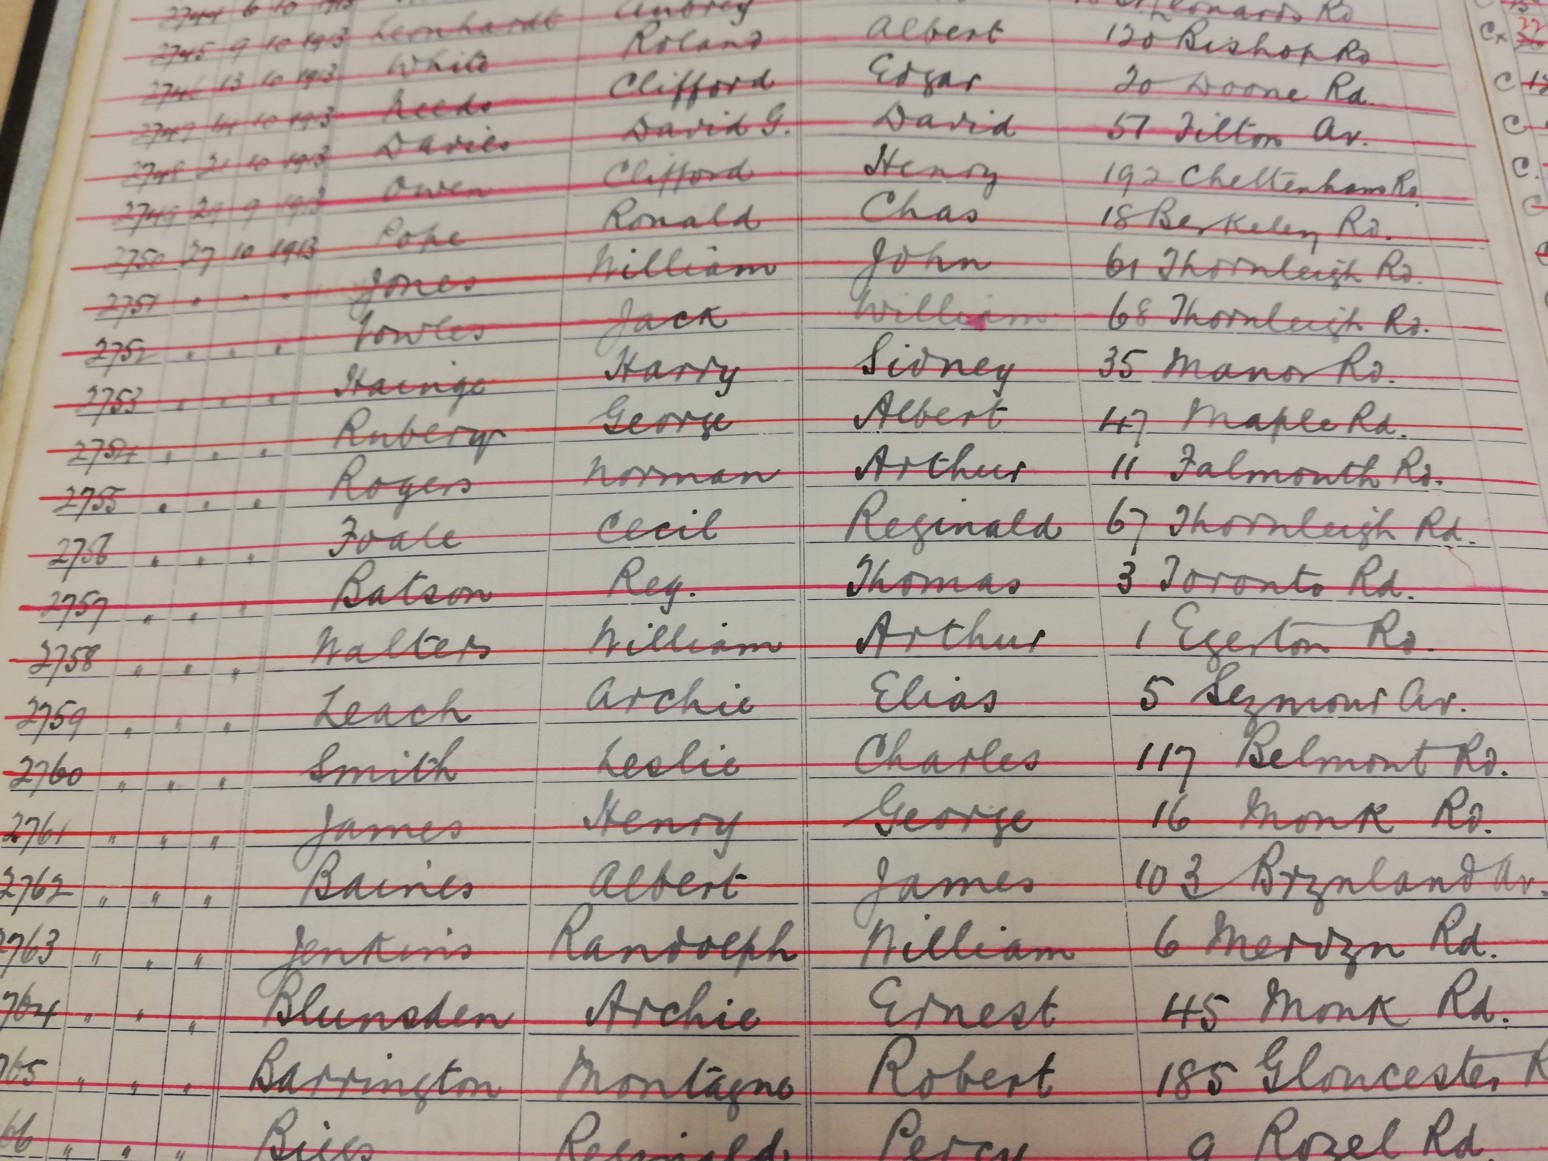 2744 6 10 1913 Leonhardt Aubrey Leonards Rd
2745 9 10 1913 White Roland Albert 120 Bishop Rd
2746 13 10 1913 Leeds Clifford Edgar 20 Doone Rd.
2747 14 10 1913 Davies David G. David 57 Filton Av.
2748 21 10 1913 Owen Clifford Henry 192 Cheltenham Rd.
2749 29 9 1913 Pope Ronald Chas 18 Berkeley Rd.
2750 27 10 1913 Jones William John 61 Thornleigh Rd.
2751 " " " Fowles Jack William 68 Thornleigh Rd.
2752 " " " Hainge Harry Sidney 35 Manor Rd.
2753 " " " Rubery George Albert 47 Maple Rd.
2754 " " " Rogers Norman Arthur 11 Falmouth Rd.
2755 " " " Foale Cecil Reginald 67 Thornleigh Rd.
2756 " " " Batson Reg. Thomas 3 Toronto Rd.
2757 " " " Walters William Arthur 1 Egerton Rd.
2758 " " " Leach Archie Elias 5 Seymour Av.
2759 " " " Smith Leslie Charles 117 Belmont Rd.
2760 " " " James Henry George 16 Monk Rd.
2761 " " " Baines Albert James 103 Brynland Av.
2762 " " " Jenkins Randolph William 6 Mervyn Rd.
2763 " " " Blunsden Archie Ernest 45 Monk Rd.
2764 " " " Barrington Montague Robert 185 Gloucester R
765 " " " Bills Reginald Percy 9 Rozel Rd.
66 " " "